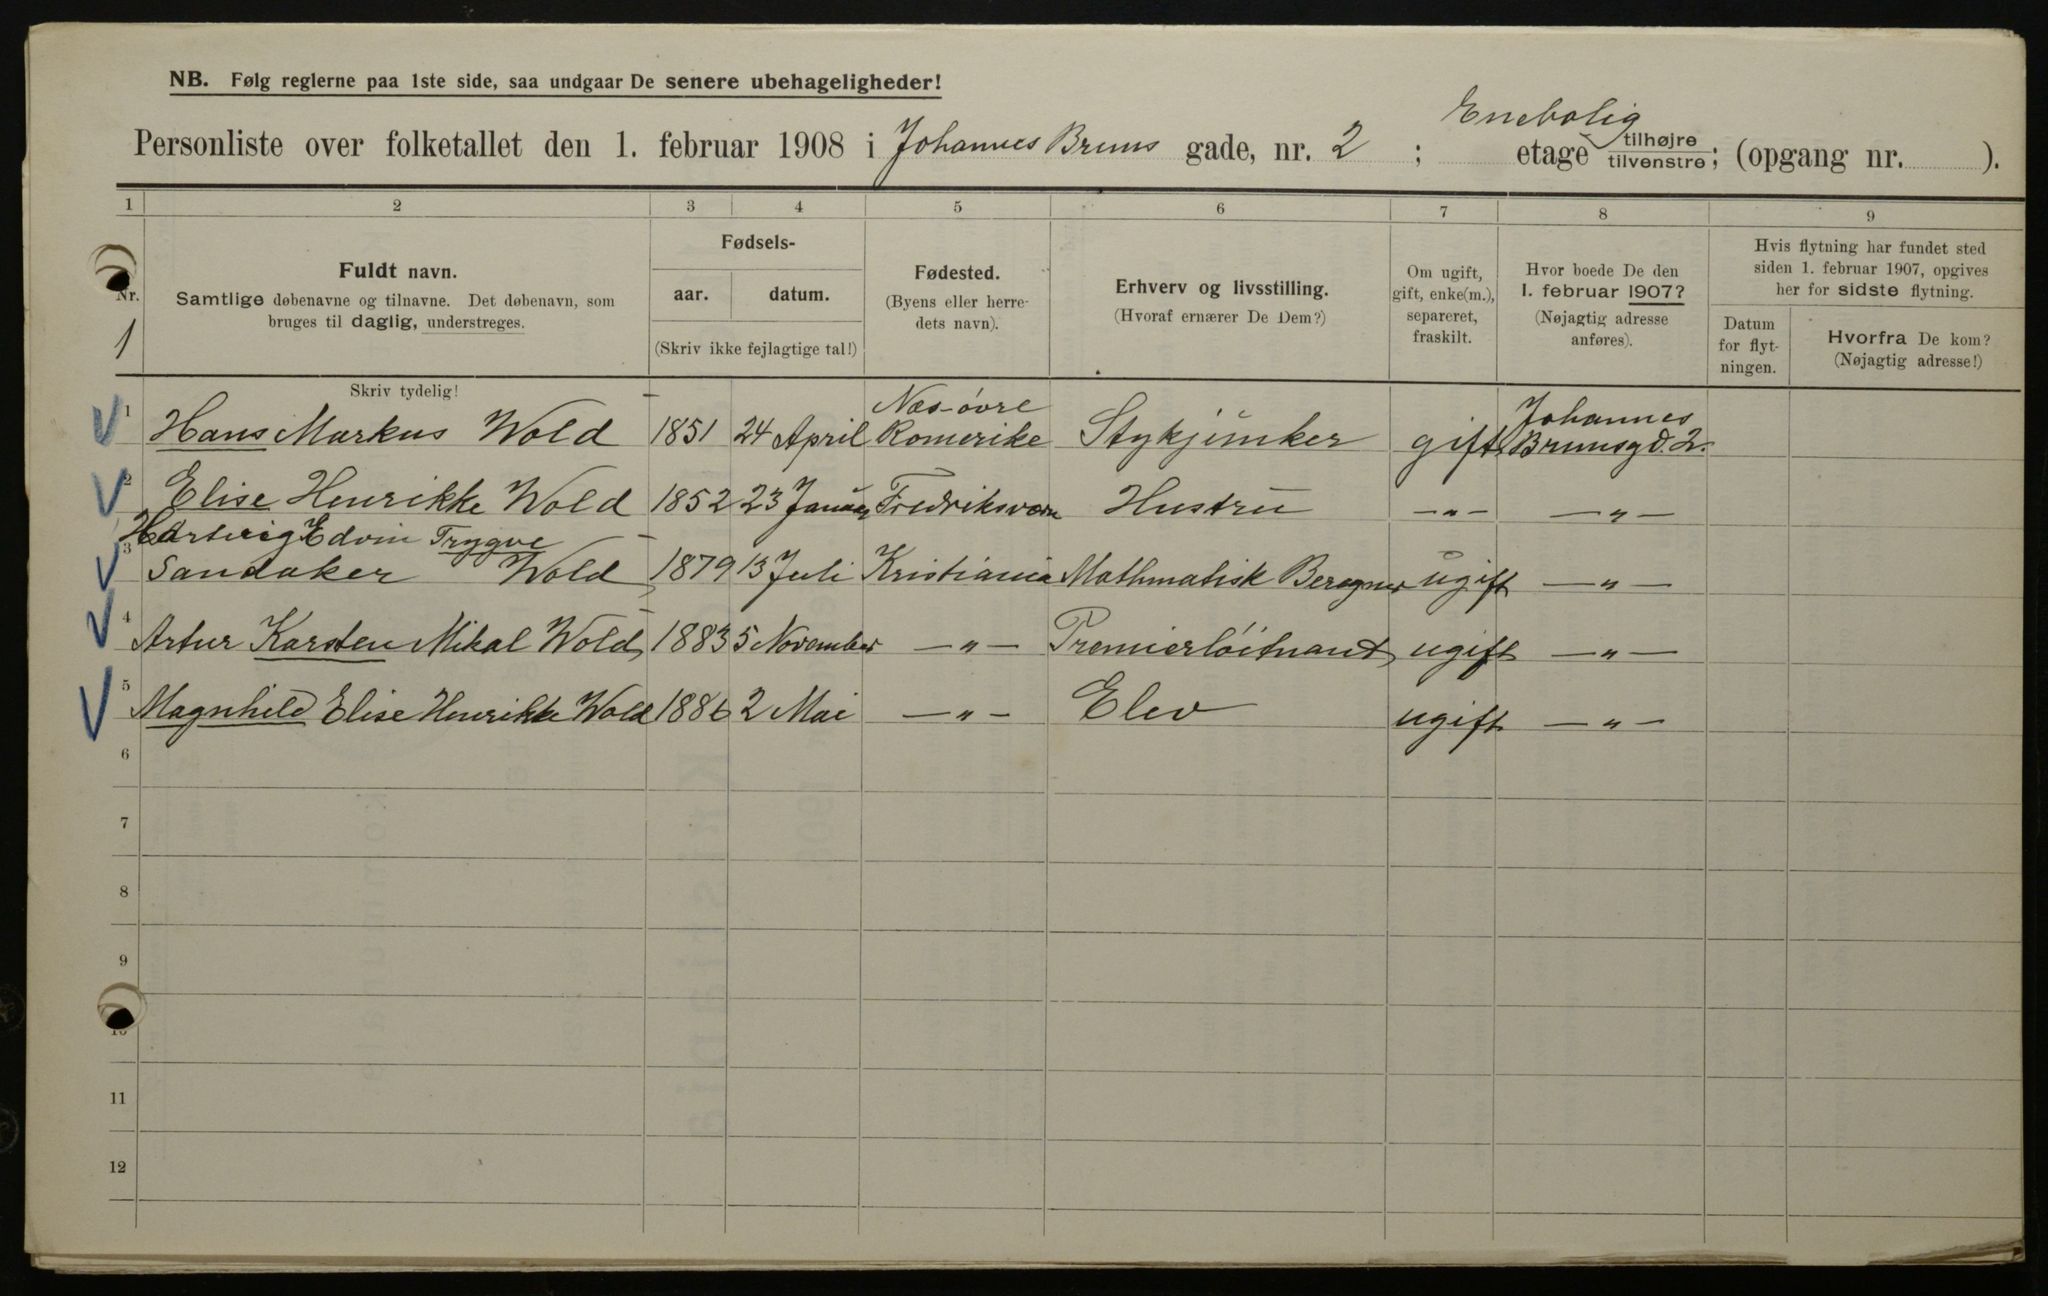 NB. Følg reglerne paa 1ste side, saa undgaar De senere ubehageligheder!
Enebolig
Personliste over folketallet den 1. februar 1908 i Johannes Bruns gade, nr. 2 ; etage tilhøjre tilvenstre; (opgang nr. ).
1 2 3 4 5 6 7 8 9
Nr.
1
Fuldt navn.
Samtlige døbenavne og tilnavne. Det døbenavn, som
bruges til daglig, understreges.
Fødsels-
aar. datum.
(Skriv ikke fejlagtige tal!)
Fødested.
(Byens eller herre-
dets navn).
Erhverv og livsstilling.
(Hvoraf ernærer De Dem?)
Om ugift,
gift, enke(m.),
separeret,
fraskilt.
Hvor boede De den
1. februar 1907?
(Nøjagtig adresse
anføres).
Hvis flytning har fundet sted
siden 1. februar 1907, opgives
her for sidste flytning.
Datum
for flyt-
ningen.
Hvorfra De kom?
(Nøjagtig adresse!)
Skriv tydelig!
Næs-óvre Johannes
1 Hans Markus Wold 1851 24 April Romerike Stykjunker gift Brunsgd. 2.
2 Elise Henrikke Wold 1852 23 Januar Fredriksværn Hustru —„— —„—
Hartvig Edvin Trygve
3 Sandaker Wold 1879 13 Juli Kristiania Mathmatisk Beregner ugift —„—
4 Artur Karsten Mikal Wold 1883 5 November —„— Premierlóitnant ugift —„—
5 Magnhild Elise Henrikke Wold 1886 2 Mai —„— Elev ugift —„—
6
7
8
9
10
11
12